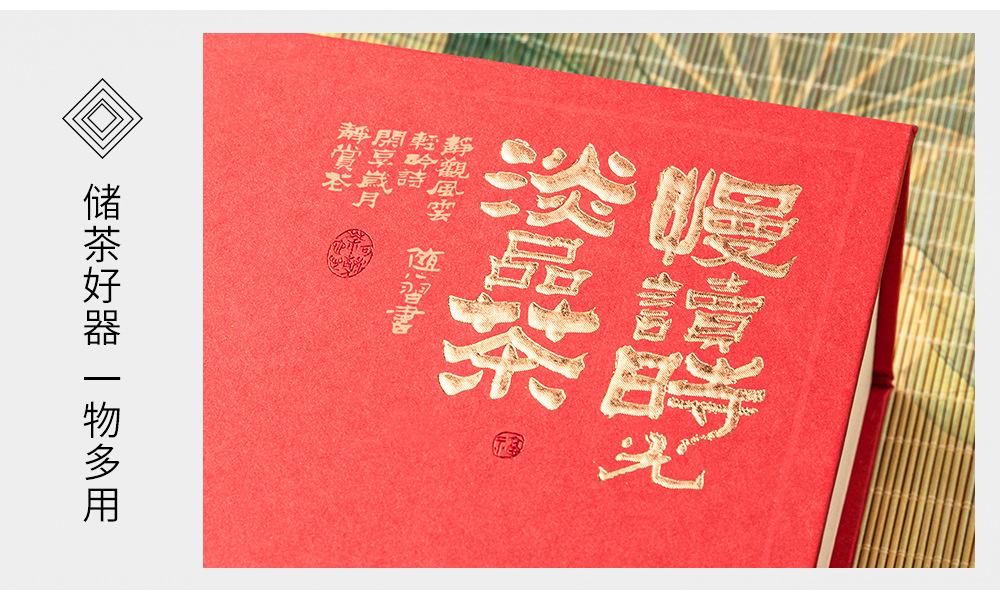 储茶好器 一物多用
慢讀時光
淡品茶
靜觀風雲
輕吟詩
閑享歲月
靜賞花